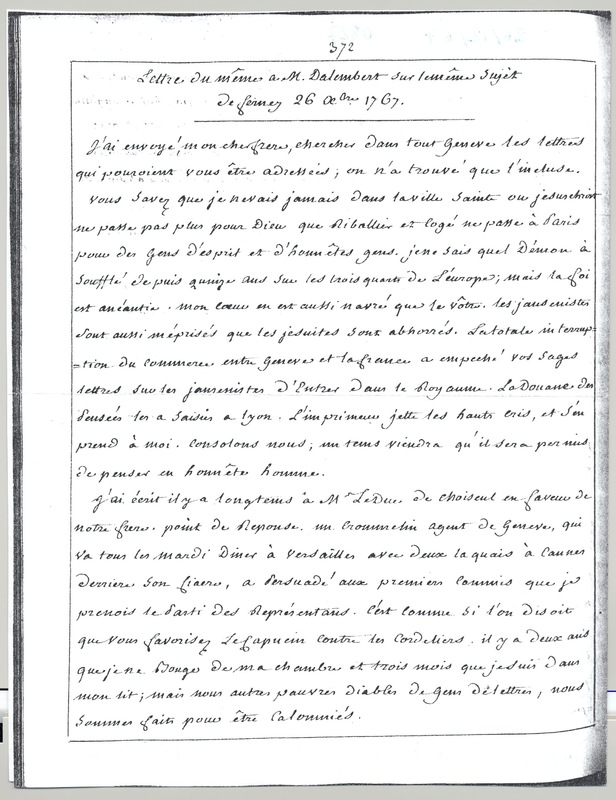 372
Lettre du même a M. Dalembert sur le même Sujét
de ferney 26 Xbre 1767.
J'ai envoyé, mon cher frere, chercher dans tout Geneve les lettres
qui pouroient vous être adressées; on n'a trouvé que l'incluse.
Vous Savez que je nevais jamais dans laville Sainte ou jesuschrist
ne passe pas plus pour Dieu que Riballier et Cogé ne passe à Paris
pour des Gens d'esprit et d'honnêtes gens. jene sais quel Démon à
Soufflé depuis quinze ans sur les trois quarts de L'europe; mais la foi
est anéantie. mon Coeur en est aussi navré que le vôtre. les jansenistes
Sont aussi méprisés que les jesuites Sont abhorrés. La totale interrup-
=tion du Commerce entre Geneve et la france a empeché vos Sages
lettres sur les jansenistes d'Entrer dans le Royaume. La Douane des
Pensées les a Saisies a Lyon. L'imprimeur jette les hauts Cris, et S'en
prend à moi. Consolons nous; un tems viendra qu'il sera permis
de penser en honnête homme.
J'ai écrit il y a longtems à Mr LeDuc de Choiseul en faveur de
notre frere. point de Reponse. un Crommelin agent de Geneve, qui
va tous les mardi Diner à Versailles avec deux laquais à Cannes
derriere Son fiacre, a Persuadé aux premiers Commis que je
prenois le Parti des Représentans. C'est Comme Si l'on disoit
que Vous favorisez Le Capucin Contre les Cordeliers. il y a deux ans
que jene Bouge de ma chambre et trois mois que jesuis dans
mon lit; mais nous autres pauvres diables de Gens de lettres, nous
Sommes faits pour être Calomniés.